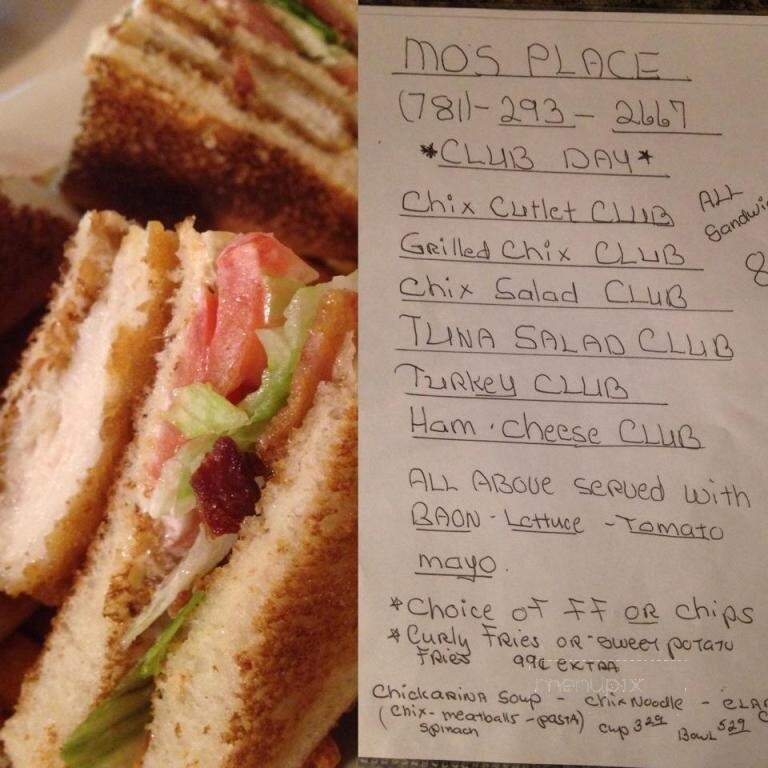 MO'S PLACE
(781)-293-2667
*CLUB DAY*
ALL
Sandwi
8
Chix Cutlet CLUB
Grilled Chix CLUB
Chix Salad CLUB
TUNA SALAD CLUB
Turkey CLUB
Ham · Cheese CLUB
ALL ABOVE Served with
BAON - Lettuce - Tomato
mayo.
*Choice of FF OR chips
*Curly Fries OR sweet potato
Fries 99¢ EXTRA
menupix
Chickarina Soup - Chix Noodle - CLA
(Chix - meatballs - pasta) Cup 3.29 Bowl 5.29 C
spinach